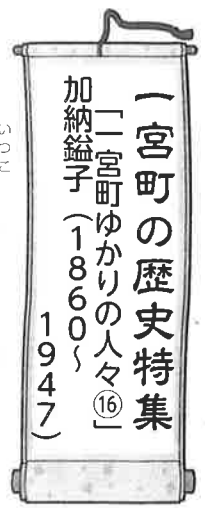 一宮町の歴史特集
「一宮町ゆかりの人々⑯」
加納鎰子（1860～
1947）
いつこ